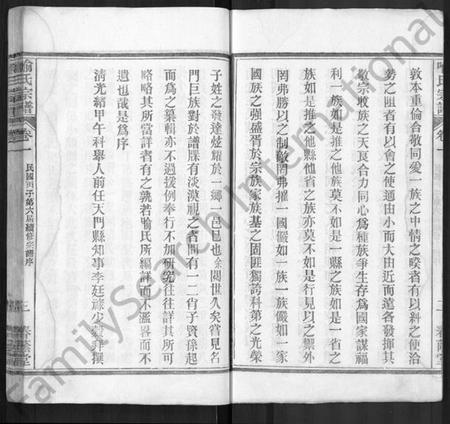 敦本重倫合敬同愛一族之中情之睽者有以糾之使洽
勢之阻者有以會之使通由小而大由近而遠各發揮其
敬宗收族之天良合力同心為種族爭生存為國家謀福
利一族如是推之他族莫不如是一縣之族如是一省之
族如是推之他縣他省之族亦莫不如是行見以之禦外
罔弗勝以之制敵罔弗摧一國儼如一族一族儼如一家
國族之強盛胥於宗族家族基之固匪獨誇科第之光榮
子姓之發達炫耀於一鄉一邑已也余閱世久矣嘗見名
門巨族對於譜牒有淡漠視之者間有一二肖子賢孫起
而為之纂輯亦不過援例奉行不加研究往往詳其所可
略略其所當詳者有之孰若喻氏所編詳而不濫畧而不
遺也哉是為序
清光緒甲午科舉人前任天門縣知事李廷祿少 撰
喻氏宗譜
卷一
民國丙子第六屆續修宗譜序
二
春蔭堂